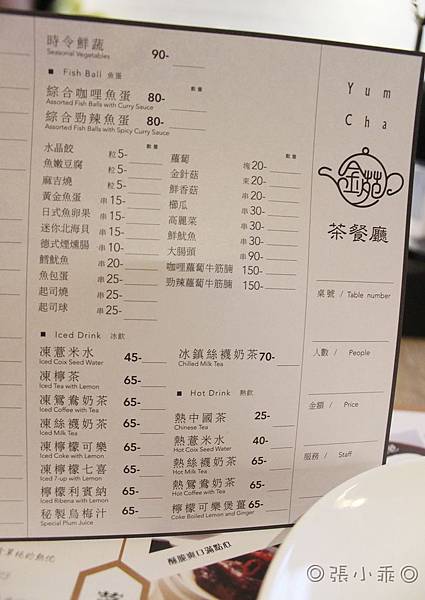 時令鮮蔬 90-
Seasonal Vegetables
■ Fish Ball 魚蛋 數量
綜合咖哩魚蛋 80-
Assorted Fish Balls with Curry Sauce
綜合勁辣魚蛋 80-
Assorted Fish Balls with Spicy Curry Sauce
數量
水晶餃 粒5-
魚嫩豆腐 粒5-
麻吉燒 粒5-
黃金魚蛋 串15-
日式魚卵果 串15-
迷你北海貝 串15-
德式煙燻腸 串10-
鱈魷魚 串20-
魚包蛋 串25-
起司燒 串25-
起司球 串25-
數量
蘿蔔 塊20-
金針菇 束20-
鮮香菇 串20-
櫛瓜 串30-
高麗菜 串30-
鮮魷魚 串50-
大腸頭 串90-
咖哩蘿蔔牛筋腩 150-
勁辣蘿蔔牛筋腩 150-
■ Iced Drink 冰飲
凍薏米水 45-
Iced Coix Seed Water
凍檸茶 65-
Iced Tea with Lemon
凍鴛鴦奶茶 65-
Iced Coffee with Tea
凍絲襪奶茶 65-
Iced Milk Tea
凍檸檬可樂 65-
Iced Coke with Lemon
凍檸檬七喜 65-
Iced 7-up with Lemon
檸檬利賓納 65-
Iced Ribena with Lemon
秘製烏梅汁 65-
Special Plum Juice
冰鎮絲襪奶茶 70-
Chilled Milk Tea
■ Hot Drink 熱飲
熱中國茶 25-
Chinese Tea
熱薏米水 40-
Hot Coix Seed Water
熱絲襪奶茶 65-
Hot Milk Tea
熱鴛鴦奶茶 65-
Hot Coffee with Tea
檸檬可樂煲薑 65-
Coke Boiled Lemon and Ginger
Yum
Cha
金苑
茶餐廳
桌號 / Table number
人數 / People
金額 / Price
服務 / Staff
酥脆爽口滿點心
◎張小乖◎